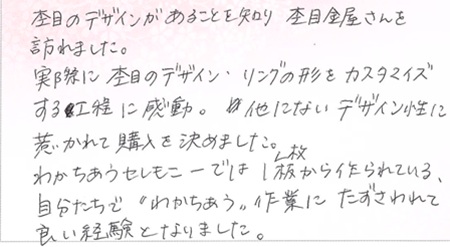 杢目のデザインがあることを知り 杢目金屋さんを
訪れました。
実際に 杢目のデザイン・リングの形を カスタマイズ
する工程に感動。 他にない デザイン性に
惹かれて購入を決めました。
わかちあうセレモニーでは 1枚板から作られている、
自分たちで “わかちあう„ 作業に たずさわれて
良い経験となりました。